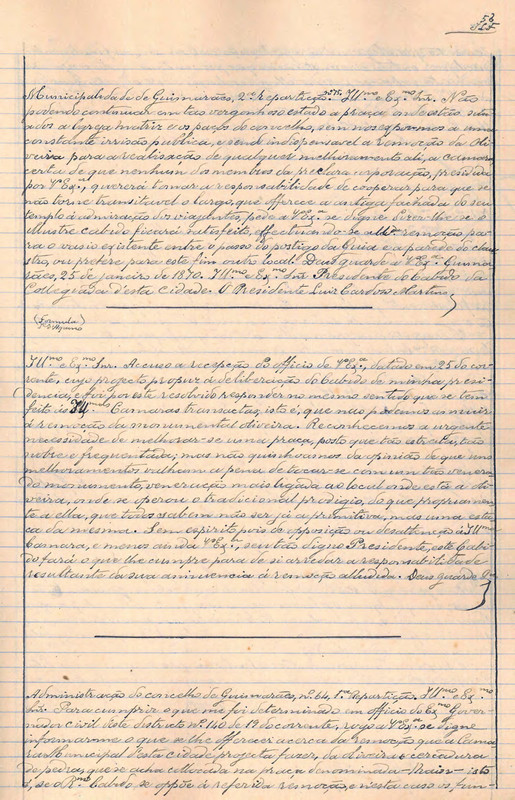 58
Municipalidade de Guimarães, 2ª repartição, nº 15. Illmo e Exmo Snr. Não
podendo continuar em tão vergonhoso estado a praça onde estão situ-
ados a egreja matriz e os paços do concelho, sem nos expormos a uma
constante irrisão publica, e sendo indispensavel a remoção da Oli-
veira para a realisação de qualquer melhoramento ali, a camara,
certa de que nenhum dos membros da preclara corporação, presidida
por V. Exª, quererá tomar a responsabilidade de cooperar para que se
não torne transitavel o largo, que offerece a antiga fachada do seu
templo à admiração dos viajentes, pede a V. Exª. se digne dizer-lhe se o
illustre cabido ficará satisfeito, effectuando-se a remoção pa-
ra o vasio existente entre o passo do postigo da Guia e a parede do claus-
tro, ou prefere para este fim outro local. Deus guarde a V. Exª. Guima-
rães, 25 de janeiro de 1870. Illmo e Exmo Snr Presidente do Cabido da
Collegiada d'esta cidade. O Presidente Luiz Cardoso Martins
(Formula
Illmo e Exmo Snr. Accuso a recepção do officio de V. Exª, datado em 25 do cor-
rente, cujo projecto propuz à deliberação do Cabido de minha presi-
dencia, e foi por este resolvido responder no mesmo sentido que se tem
feito ás Illmas Camaras transactas, isto é, que não podemos annuir
à remoção da monumental oliveira. Reconhecemos a urgente
necessidade de melhorar-se uma praça, posto que tão estreita, tão
nobre e frequentada; mas não quinhoamos da opinião de que uns
melhoramentos valham a pena de tocar-se com um tão venera-
do monumento, veneração mais ligada ao local onde está a oli-
veira, onde se operou o tradicional prodigio, do que propriamen-
te a ella, que todos sabem não ser já a primitiva, mas uma esta-
ca da mesma. Sem espirito pois de opposição ou desattenção à Illma
Camara, e menos ainda a V. Exª, seu tão digno Presidente, este Cabi-
do fará o que lhe cumpre para de si arredar a responsabilidade
resultante da sua annuencia à remoção alludida. Deus guarde &ª
Administração do concelho de Guimarães, nº 64, 1ª repartição. Illmo e Exmo
Snr. Para cumprir o que me foi determinado em officio do Exmo Gover-
nador civil deste districto nº 140 de 19 do corrente, rogo a V. Exª. se digne
informarme o que se lhe offerecer acerca da remoção que a Cama-
ra Municipal desta cidade projecta fazer, da oliveira e cercadura
de pedras, que se acha collocada na praça denominada-Maior- isto
é, se o Rmo Cabido se oppõe à referida remoção, e neste caso os fun-